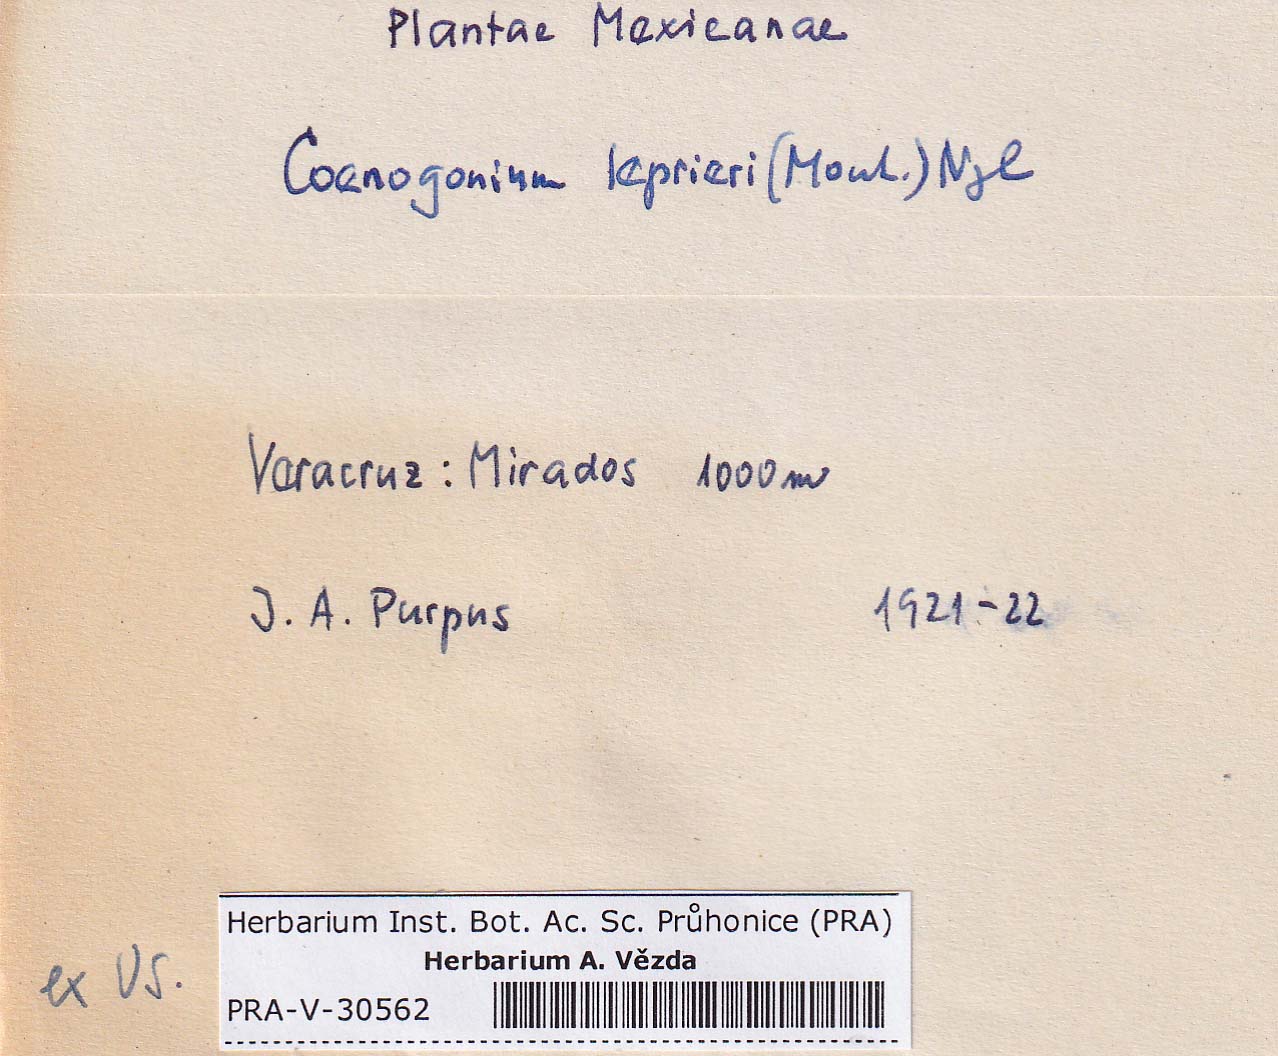 Plantae Mexicanae
Coenogonium leprieri (Mont.) Nyl
Veracruz : Mirados 1000 m
J. A. Purpus 1921-22
ex US.
Herbarium Inst. Bot. Ac. Sc. Průhonice (PRA)
Herbarium A. Vězda
PRA-V-30562